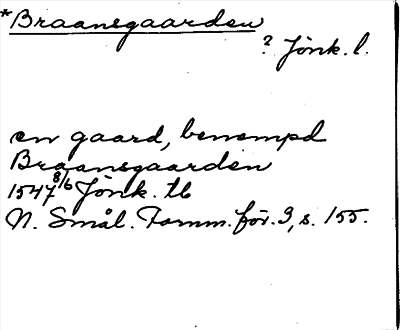 *Braansgaarden
? Jönk. l.
en gaard, benempd
Braansgaarden
1547 8/6 Jönk. tb
N. Smål. Fornm. för. 3, s. 155.